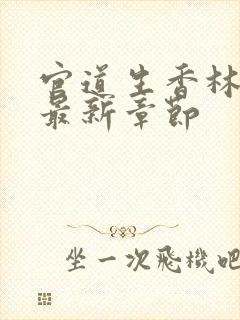 官道生香林
最新章节
坐一次飛機吧